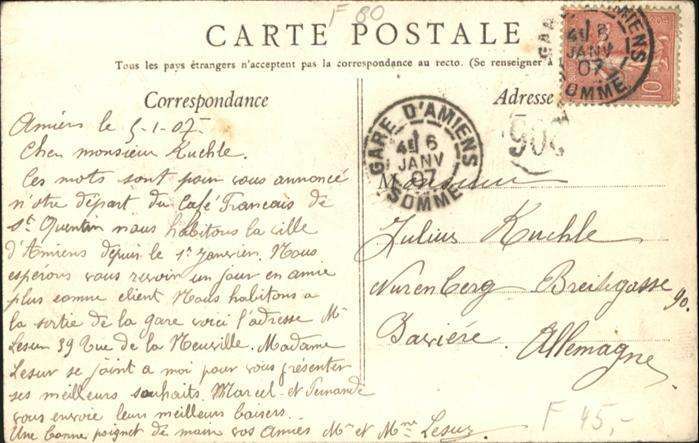 F 80
CARTE POSTALE
Tous les pays étrangers n'acceptent pas la correspondance au recto. (Se renseigner à
Correspondance
Adresse
Amiens le 5-1-07
Cher monsieur Kuchle.
Ces mots sont pour vous annoncé
n'otre départ du Café Francais de
St Quentin nous habitons la ville
d'Amiens depuis le 1r Janvier. Nous
espérons vous revoir un jour en amie
plus comme client Nous habitons a
la sortie de la gare voici l'adresse Mr
Lesur 39 Rue de la Neuville. Madame
Lesur se joint a moi pour vous présenter
ses meilleurs souhaits. Marcel et Fernande
vous envoie leurs meilleurs baisers
Une bonne poignet de main vos Amies Mr et Mme Lesur
Monsieur
Julius Kuchle
Nurenberg Breitegasse 90.
Bavière.
Allemagne
GARE D'AMIENS
6
JANV
07
SOMME
GARE D'AMIENS
6
JANV
07
SOMME
10
F 45,-